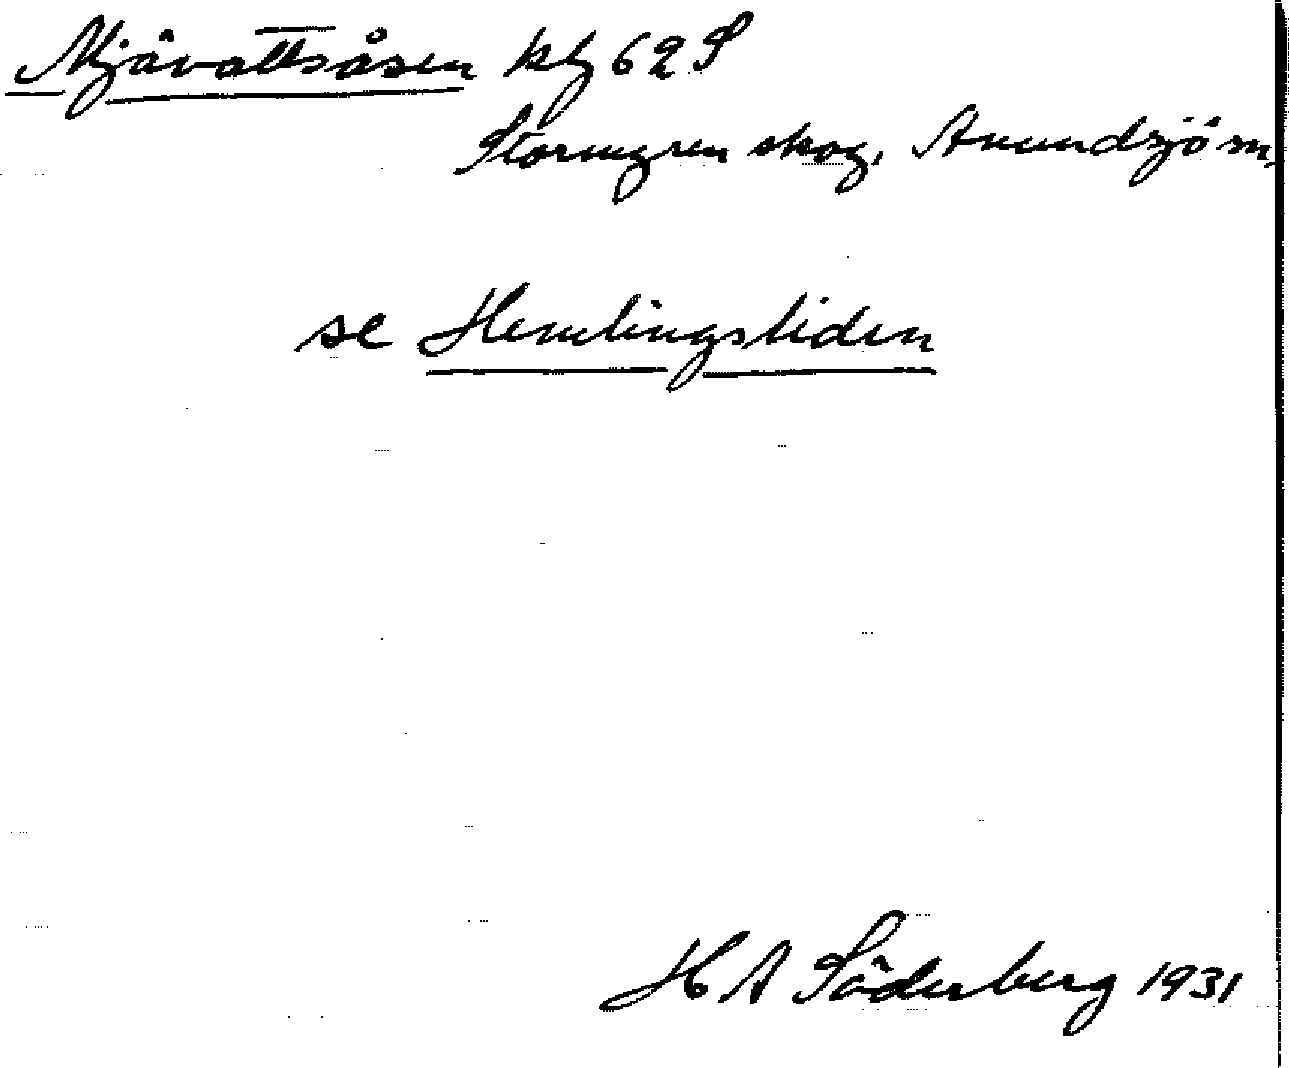 Mjåvattsåsen kbj 62 S
Stormyren skog, Anundsjö sn,
se Hemlingsliden
H A Söderberg 1931